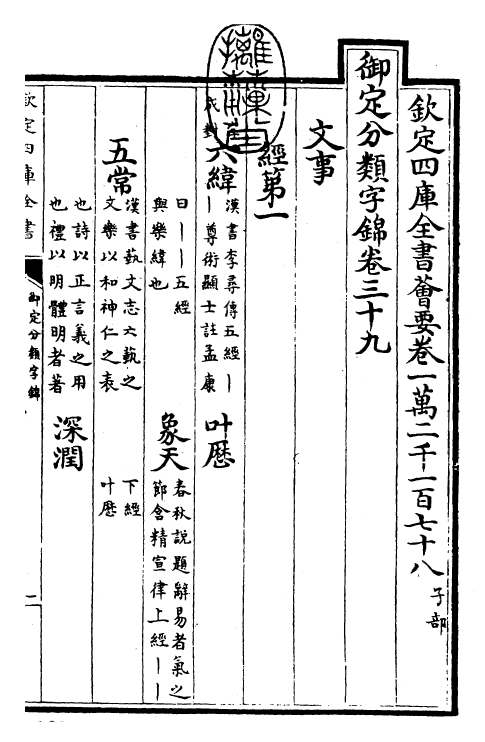 欽定四庫全書薈要卷一萬二千一百七十八 子部
御定分類字錦卷三十九
文事
經第一
成對
六緯 漢書李尋傳五經丨
丨尊術顯士註孟康
曰丨丨五經
與樂緯也
叶厯
象天 春秋說題辭易者氣之
節含精宣律上經丨丨
下經
叶厯
五常 漢書藝文志六藝之
文樂以和神仁之表
也詩以正言義之用
也禮以明體明者著
深潤
欽定四庫全書
御定分類字錦